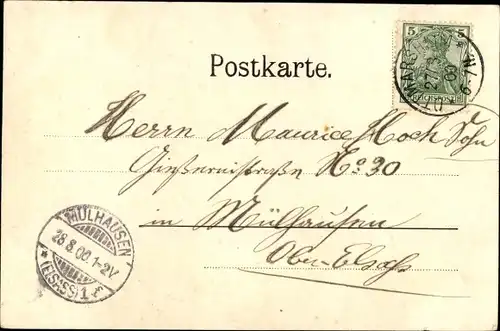 5
5
27.8
00
6-7N.
Postkarte.
Herrn Maurice Hoch Sohn
Gießereistraße No 30
in Mülhausen
Ober-Elsaß
MÜLHAUSEN
28.8.00.1-2V
* (ELSASS) 1 f